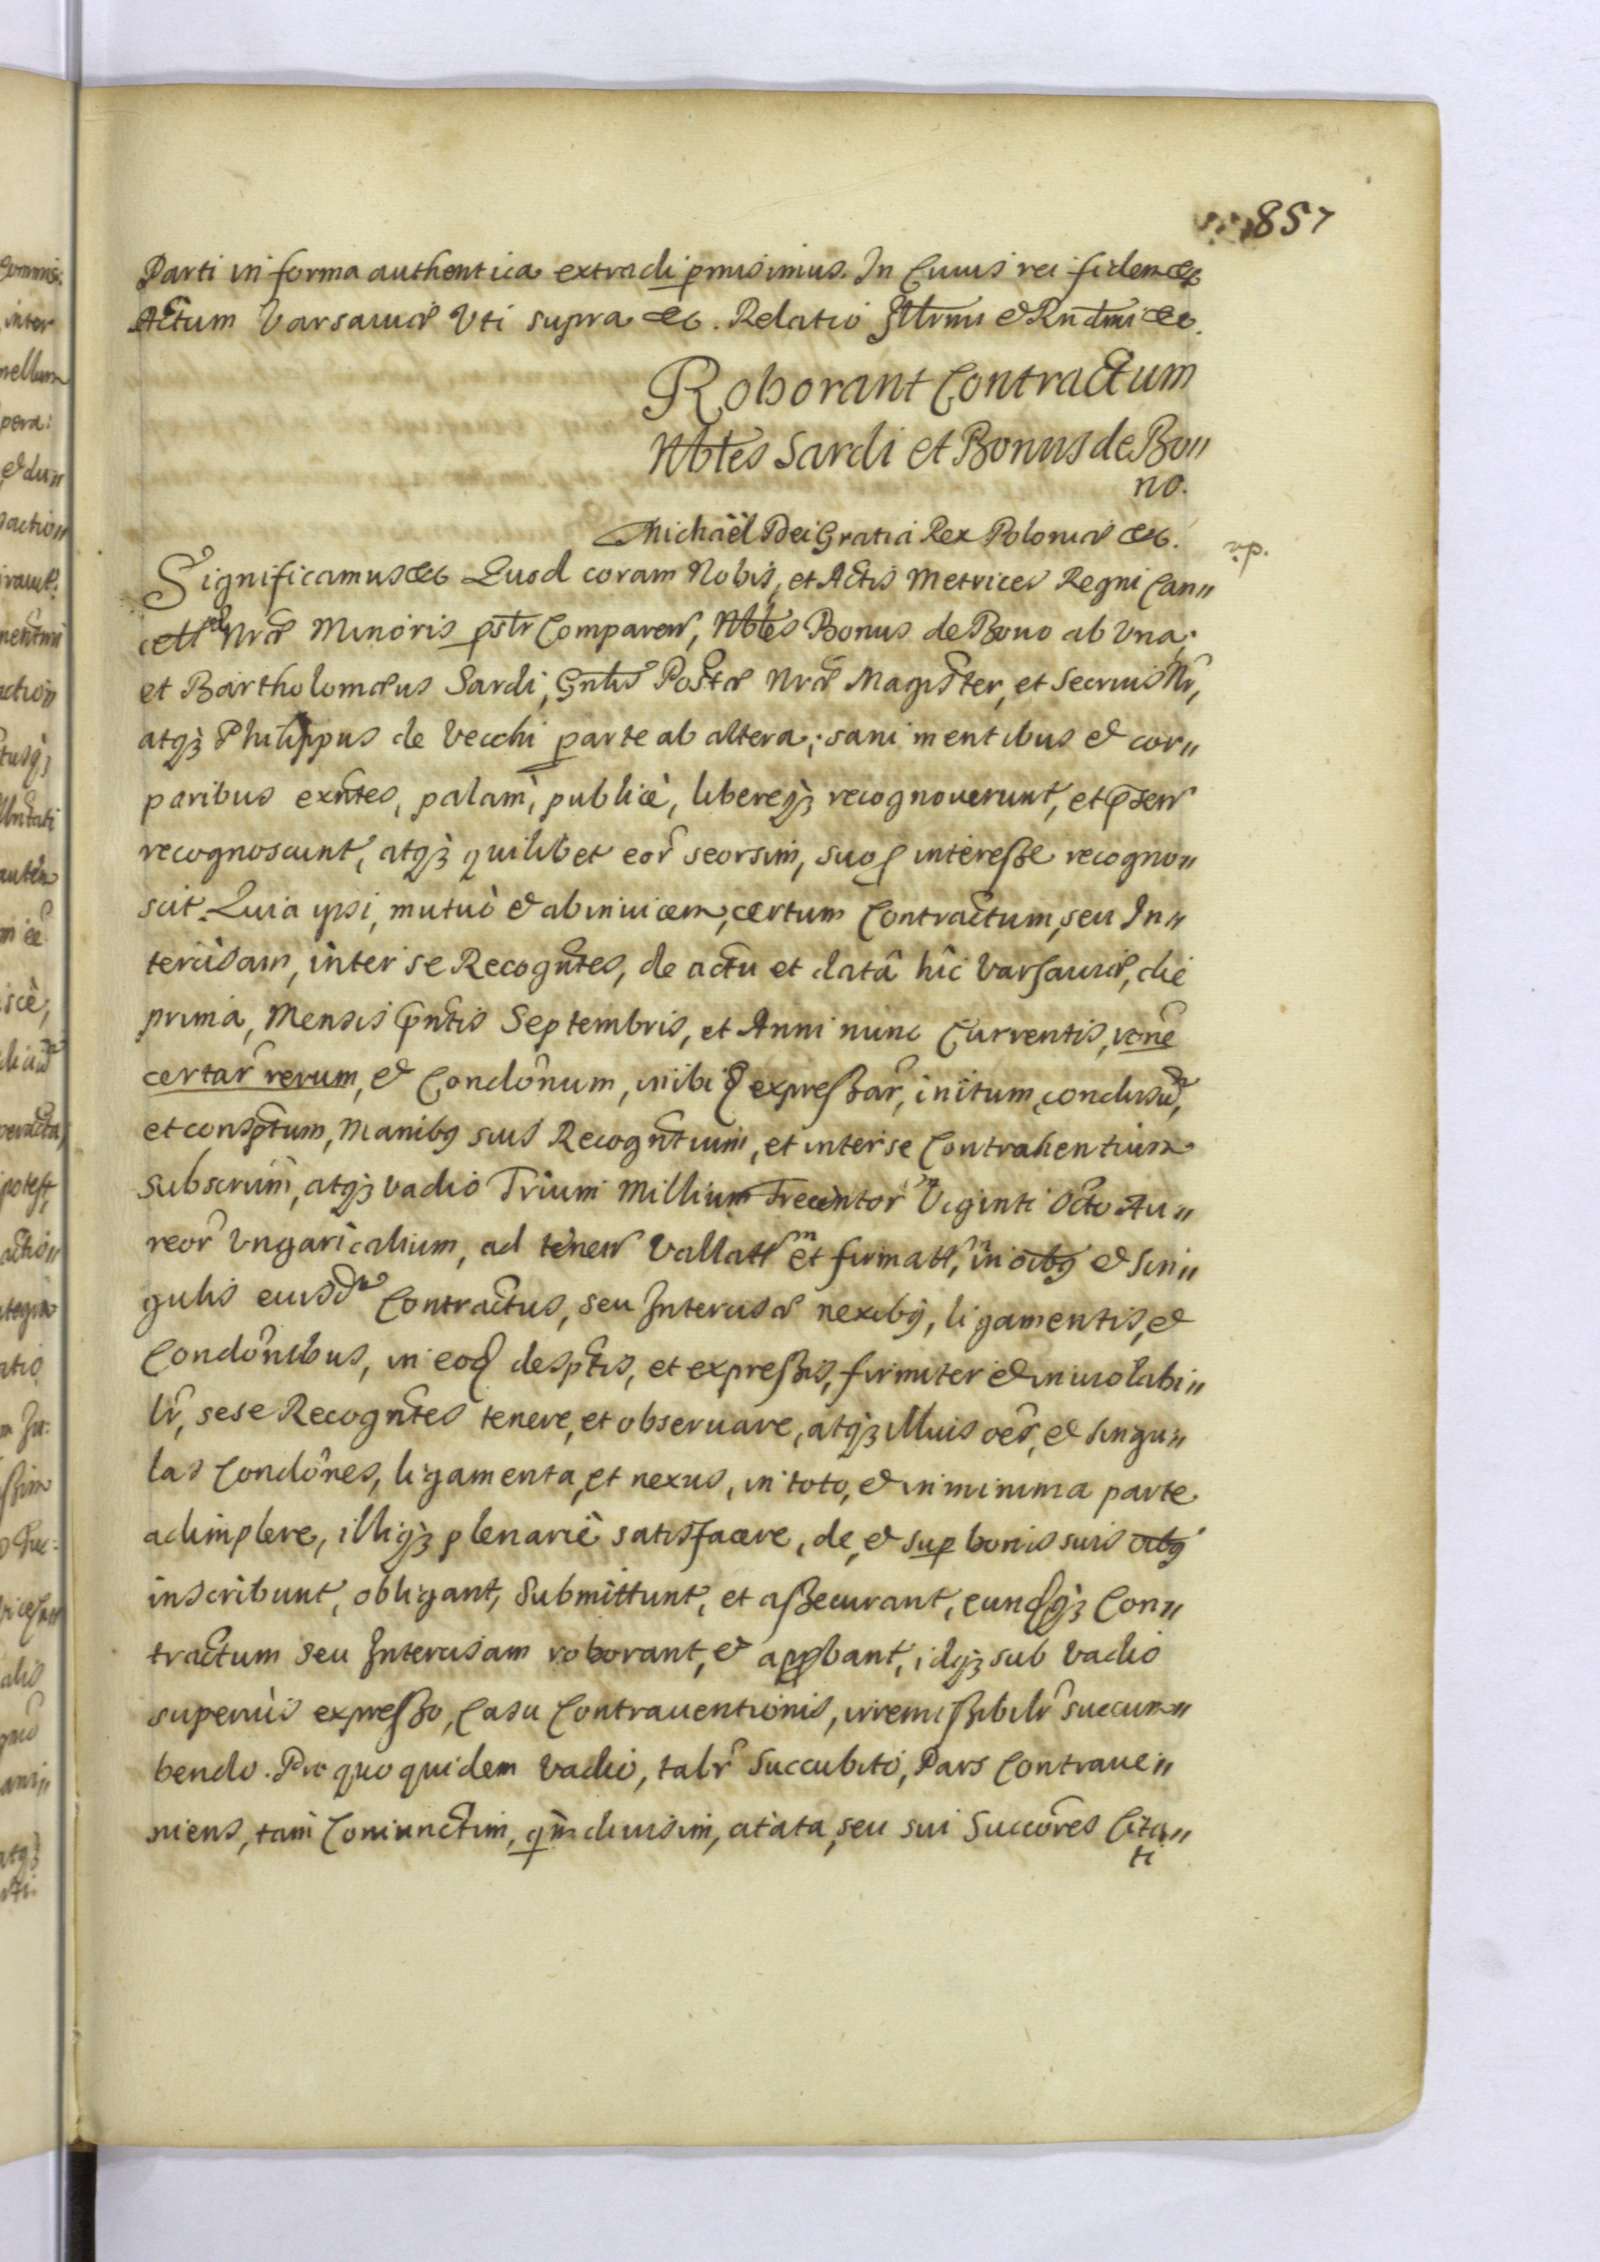 857
Parti in forma authentica extradi pmisimus. In Cuius rei fidem etc
Actum Varsaviæ Vti supra etc. Relatio Illrmi et Rndmi etc.
Roborant Contractum
Nbles Sardi et Bonus de Bo„
no.
Michaël Dei Gratia Rex Poloniæ etc.
v.p.
Significamus etc Quod coram Nobis, et Actis Metrices Regni Can„
cell Nræ Minoris pslr Comparen, Nbles Bonus de Bono ab Vna;
et Bartholomæus Sardi, Gnlis Postæ Nræ Magister, et Secrius Nr,
atq3 Philippus de Vecchi parte ab altera; sani mentibus et cor„
poribus exntes, palam, publicè, libereq3 recognoverunt, et psen
recognoscunt, atq3 quilibet eor seorsim, suo interesse recogno„
scit. Quia ipsi, mutuò et abinuicem, certum Contractum, seu In„
tercisam, inter se Recogntes, de actu et datâ hîc Varsauiæ, die
prima, Mensis pntis Septembris, et Anni nunc Currentis, rone
certar rerum, et Condonum, inibi expressar, initum, conclusum,
et consptum, Manibq suis Recogntium, et inter se Contrahentium
subscrum, atq3 vadio Trium Millium Trecentor Viginti Octo Au„
reor Vngaricalium, ad tenen Vallatm et firmatm, in oibq et sin„
gulis eiusdm Contractus, seu Intercisæ nexibq, ligamentis, et
Condonibus, in eo desptis, et expressis, firmiter et inuiolabi„
lr, sese Recogntes tenere, et obseruare, atq3 illius oes, et singu„
las Condones, ligamenta, et nexus, in toto, et in minima parte
adimplere, illiq3 plenariè satisfacere, de, et sup bonis suis oibq
inscribunt, obligant, Submittunt, et assecurant, eundq3 Con„
tractum seu Intercisam roborant, et approbant, idq3 sub Vadio
superiùs expresso, Casu Contrauentionis, irremissibilr succum„
bendo. Pro quo quidem Vadio, talr Succubito, Pars Contraue„
niens, tam Coniunctim, qm diuisim, citata, seu sui Succores Cita„
ti